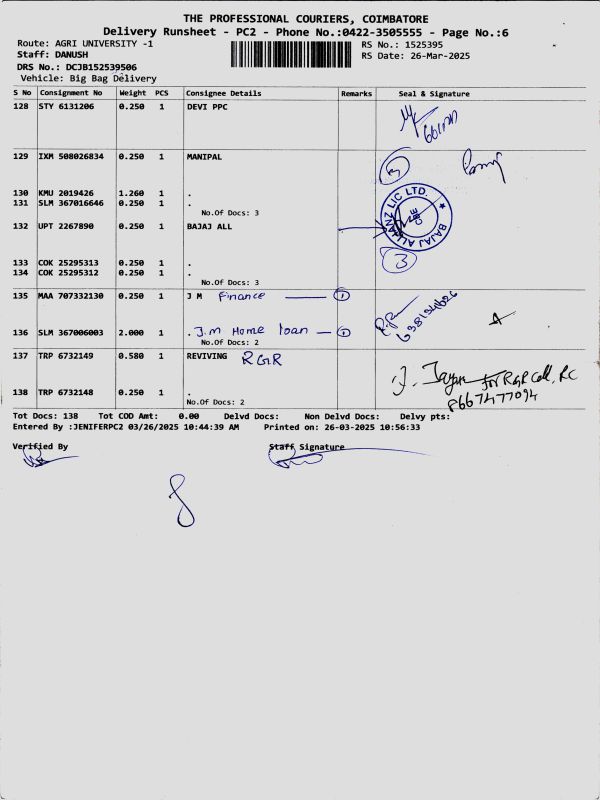 THE PROFESSIONAL COURIERS, COIMBATORE
Delivery Runsheet - PC2 - Phone No.:0422-3505555 - Page No.:6
Route: AGRI UNIVERSITY -1
RS No.: 1525395
Staff: DANUSH
RS Date: 26-Mar-2025
DRS No.: DCJB152539506
Vehicle: Big Bag Delivery
S No Consignment No Weight PCS Consignee Details Remarks Seal & Signature
128 STY 6131206 0.250 1 DEVI PPC
129 IXM 508026834 0.250 1 MANIPAL
3
130 KMU 2019426 1.260 1 .
131 SLM 367016646 0.250 1 .
No.Of Docs: 3
132 UPT 2267890 0.250 1 BAJAJ ALL
BAJAJ ALLIANZ LIC LTD.
CBE
133 COK 25295313 0.250 1 .
134 COK 25295312 0.250 1 .
3
No.Of Docs: 3
135 MAA 707332130 0.250 1 J M Finance 1
136 SLM 367006003 2.000 1 . J.m Home loan 1
No.Of Docs: 2
137 TRP 6732149 0.580 1 REVIVING RGR
138 TRP 6732148 0.250 1 .
8667477094
No.Of Docs: 2
Tot Docs: 138 Tot COD Amt: 0.00 Delvd Docs: Non Delvd Docs: Delvy pts:
Entered By :JENIFERPC2 03/26/2025 10:44:39 AM Printed on: 26-03-2025 10:56:33
Verified By Staff Signature